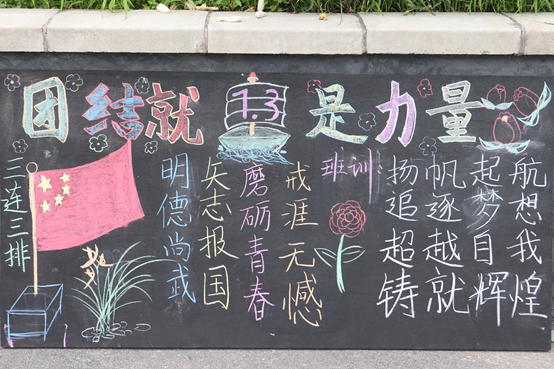 团结就是力量
13
三连三排
明德尚武
矢志报国
磨砺青春
戎涯无憾
班训
扬帆起航
追逐梦想
超越自我
铸就辉煌